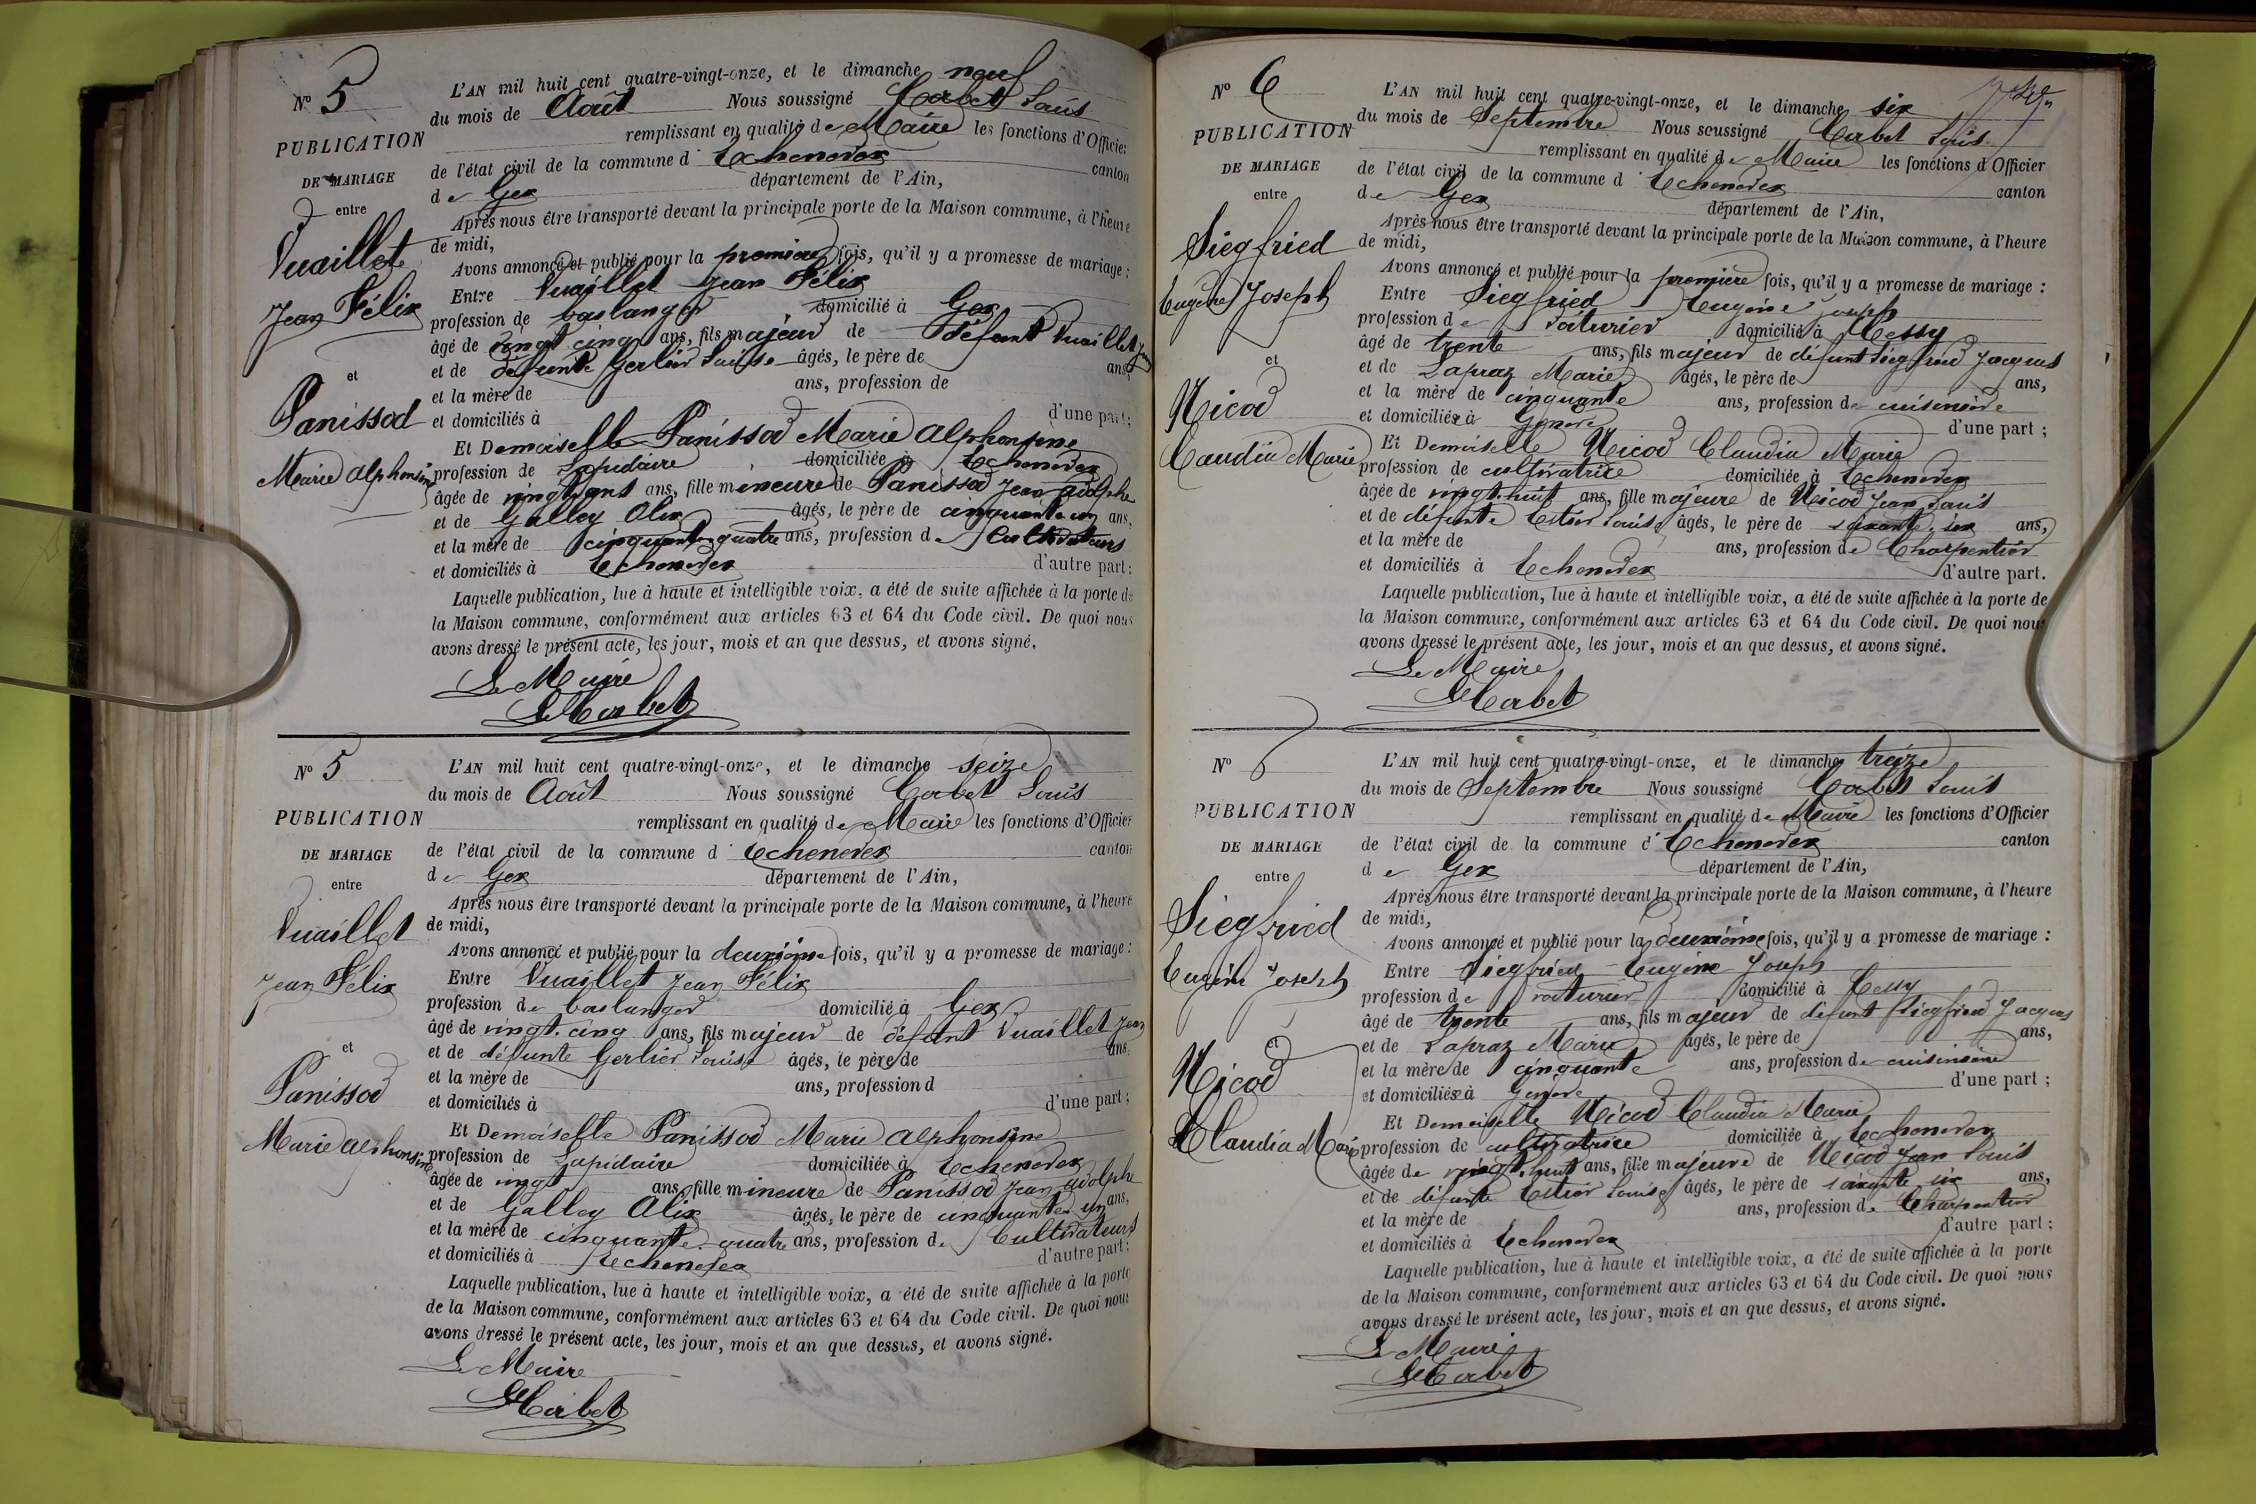 N° 5
PUBLICATION
DE MARIAGE
entre
Vuaillet
Jean Félix
et
Panissod
Marie Alphonsine
L'AN mil huit cent quatre-vingt-onze, et le dimanche neuf
du mois de Août Nous soussigné Corbet Louis
remplissant en qualité de Maire les fonctions d'Officier
de l'état civil de la commune d'Echenevex canton
de Gex département de l'Ain,
Après nous être transporté devant la principale porte de la Maison commune, à l'heure
de midi,
Avons annoncé et publié pour la première fois, qu'il y a promesse de mariage :
Entre Vuaillet Jean Félix
profession de boulanger domicilié à Gex
âgé de vingt cinq ans, fils majeur de défunt Vuaillet Jean
et de défunte Gerlier Louise âgés, le père de ans,
et la mère de ans, profession de
et domiciliés à d'une part;
Et Demoiselle Panissod Marie Alphonsine
profession de Lapidaire domiciliée à Echenevex
âgée de vingt ans, fille mineure de Panissod Jean Adolphe
et de Galley Alix âgés, le père de cinquante un ans,
et la mère de cinquante quatre ans, profession de Cultivateurs
et domiciliés à Echenevex d'autre part:
Laquelle publication, lue à haute et intelligible voix, a été de suite affichée à la porte de
la Maison commune, conformément aux articles 63 et 64 du Code civil. De quoi nous
avons dressé le présent acte, les jour, mois et an que dessus, et avons signé.
Le Maire
L Corbet
N° 5
PUBLICATION
DE MARIAGE
entre
Vuaillet
Jean Félix
et
Panissod
Marie Alphonsine
L'AN mil huit cent quatre-vingt-onze, et le dimanche seize
du mois de Août Nous soussigné Corbet Louis
remplissant en qualité de Maire les fonctions d'Officier
de l'état civil de la commune d'Echenevex canton
de Gex département de l'Ain,
Après nous être transporté devant la principale porte de la Maison commune, à l'heure
de midi,
Avons annoncé et publié pour la deuxième fois, qu'il y a promesse de mariage :
Entre Vuaillet Jean Félix
profession de boulanger domicilié à Gex
âgé de vingt cinq ans, fils majeur de défunt Vuaillet Jean
et de défunte Gerlier Louise âgés, le père de ans,
et la mère de ans, profession d
et domiciliés à d'une part;
Et Demoiselle Panissod Marie Alphonsine
profession de Lapidaire domiciliée à Echenevex
âgée de vingt ans, fille mineure de Panissod Jean Adolphe
et de Galley Alix âgés, le père de cinquante un ans,
et la mère de cinquante quatre ans, profession de Cultivateurs
et domiciliés à Echenevex d'autre part;
Laquelle publication, lue à haute et intelligible voix, a été de suite affichée à la porte
de la Maison commune, conformément aux articles 63 et 64 du Code civil. De quoi nous
avons dressé le présent acte, les jour, mois et an que dessus, et avons signé.
Le Maire
L Corbet
N° 6
PUBLICATION
DE MARIAGE
entre
Siegfried
Eugène Joseph
et
Nicod
Claudia Marie
L'AN mil huit cent quatre-vingt-onze, et le dimanche six
du mois de Septembre Nous soussigné Corbet Louis
remplissant en qualité de Maire les fonctions d'Officier
de l'état civil de la commune d'Echenevex canton
de Gex département de l'Ain,
Après nous être transporté devant la principale porte de la Maison commune, à l'heure
de midi,
Avons annoncé et publié pour la première fois, qu'il y a promesse de mariage :
Entre Siegfried Eugène Joseph
profession de voiturier domicilié à Cessy
âgé de trente ans, fils majeur de défunt Siegfried Jacques
et de Lapraz Marie âgés, le père de ans,
et la mère de cinquante ans, profession de cuisinière
et domiciliés à Genève d'une part ;
Et Demoiselle Nicod Claudia Marie
profession de cultivatrice domiciliée à Echenevex
âgée de vingt-huit ans, fille majeure de Nicod Jean Louis
et de défunte Estier Louise âgés, le père de soixante six ans,
et la mère de ans, profession de Charpentier
et domiciliés à Echenevex d'autre part.
Laquelle publication, lue à haute et intelligible voix, a été de suite affichée à la porte de
la Maison commune, conformément aux articles 63 et 64 du Code civil. De quoi nous
avons dressé le présent acte, les jour, mois et an que dessus, et avons signé.
Le Maire
L Corbet
N° 6
PUBLICATION
DE MARIAGE
entre
Siegfried
Eugène Joseph
et
Nicod
Claudia Marie
L'AN mil huit cent quatre-vingt-onze, et le dimanche treize
du mois de Septembre Nous soussigné Corbet Louis
remplissant en qualité de Maire les fonctions d'Officier
de l'état civil de la commune d'Echenevex canton
de Gex département de l'Ain,
Après nous être transporté devant la principale porte de la Maison commune, à l'heure
de midi,
Avons annoncé et publié pour la deuxième fois, qu'il y a promesse de mariage :
Entre Siegfried Eugène Joseph
profession de voiturier domicilié à Cessy
âgé de trente ans, fils majeur de défunt Siegfried Jacques
et de Lapraz Marie âgés, le père de ans,
et la mère de cinquante ans, profession de cuisinière
et domiciliés à Genève d'une part ;
Et Demoiselle Nicod Claudia Marie
profession de cultivatrice domiciliée à Echenevex
âgée de vingt-huit ans, fille majeure de Nicod Jean Louis
et de défunte Estier Louise âgés, le père de soixante six ans,
et la mère de ans, profession de Charpentier
et domiciliés à Echenevex d'autre part ;
Laquelle publication, lue à haute et intelligible voix, a été de suite affichée à la porte
de la Maison commune, conformément aux articles 63 et 64 du Code civil. De quoi nous
avons dressé le présent acte, les jour, mois et an que dessus, et avons signé.
Le Maire
L Corbet